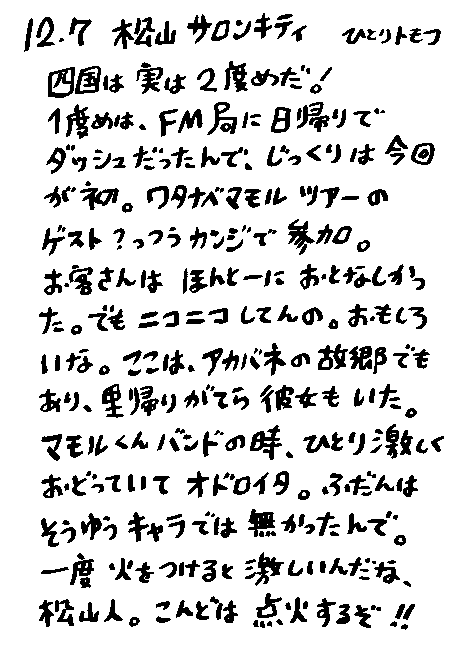 12.7 松山サロンキティ ひとりトモフ
四国は実は2度めだ!
1度めは、FM局に日帰りで
ダッシュだったんで、じっくりは今回
が初。ワタナベマモル ツアーの
ゲスト?っつうカンジで参加。
お客さんは ほんとーに おとなしかっ
た。でもニコニコしてんの。おもしろ
いな。ここは、アカバネの故郷でも
あり、里帰りがてら彼女もいた。
マモルくんバンドの時、ひとり激しく
おどっていてオドロイタ。ふだんは
そうゆうキャラでは無かったんで。
一度火をつけると激しいんだな、
松山人。こんどは点火するぞ!!